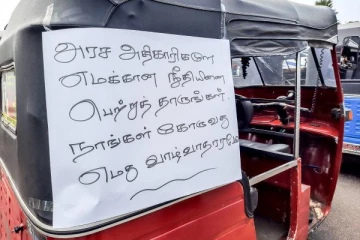 அரச அதிகாரிகளே
எமக்கான நீதியினை
பெற்றுத் தாருங்கள்
நாங்கள் கோருவது
எமது வாழ்வாதாரமே